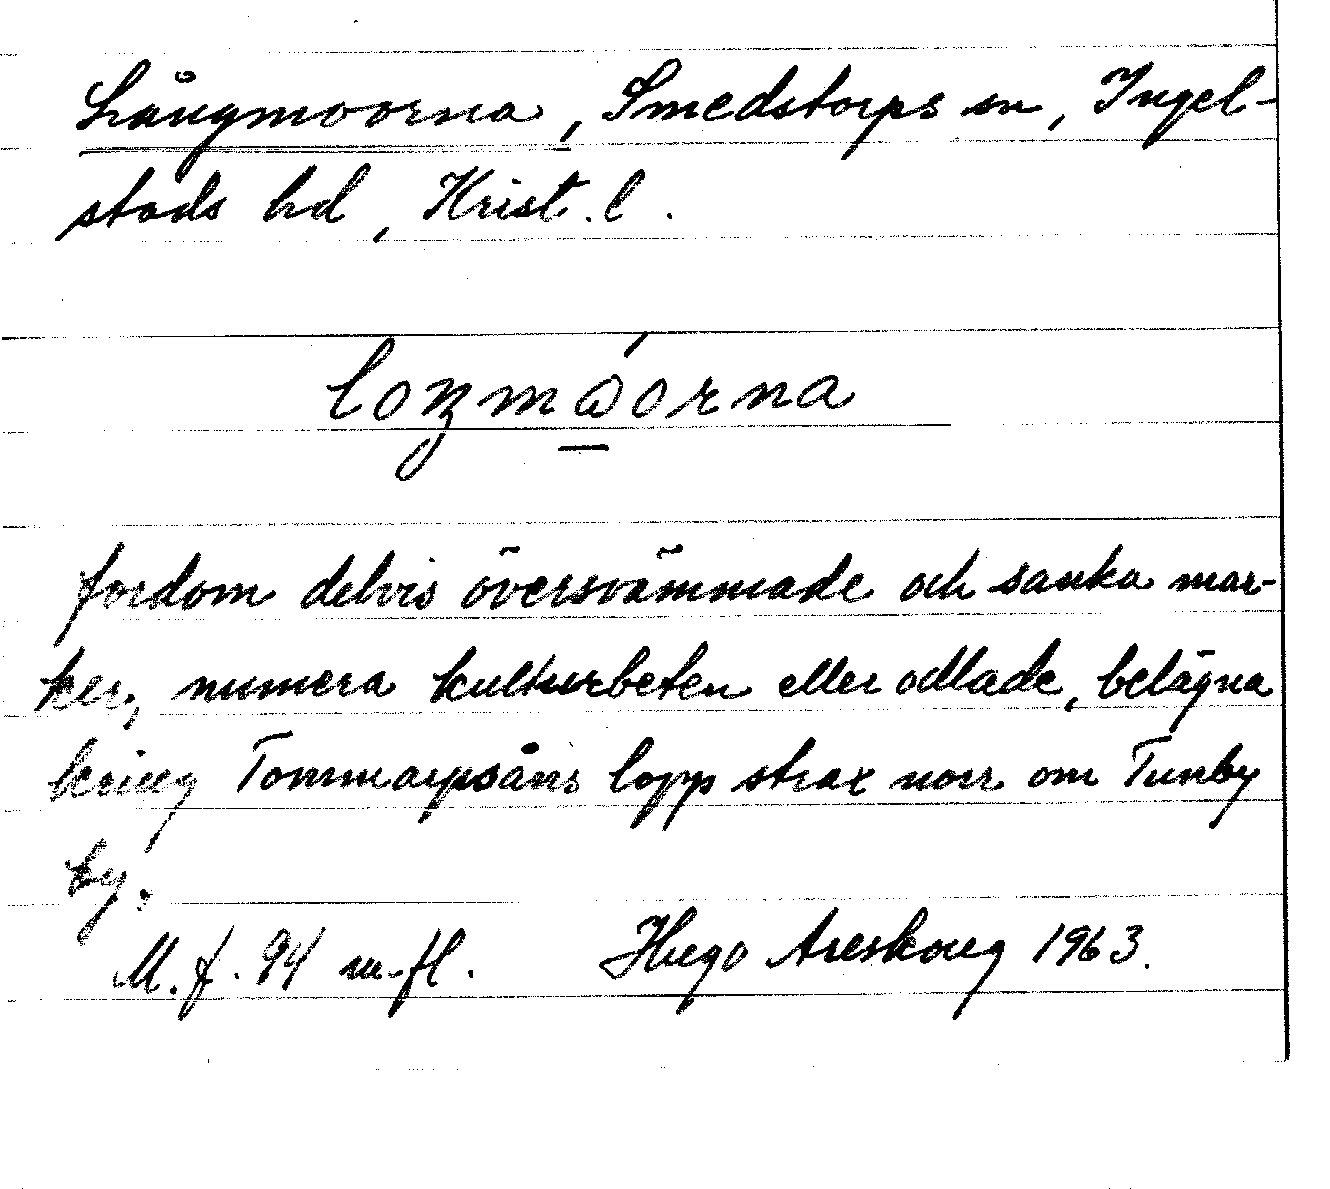 Långmoorna, Smedstorps sn, Ingel-
stads hd, Krist. l.
fordom delvis översvämmade och sanka mar-
ker, numera kulturbeten eller odlade, belägna
kring Tommarpsåns lopp strax norr om Tunby
by.
M. f. 94 m. fl. Hugo Areskoug 1963.